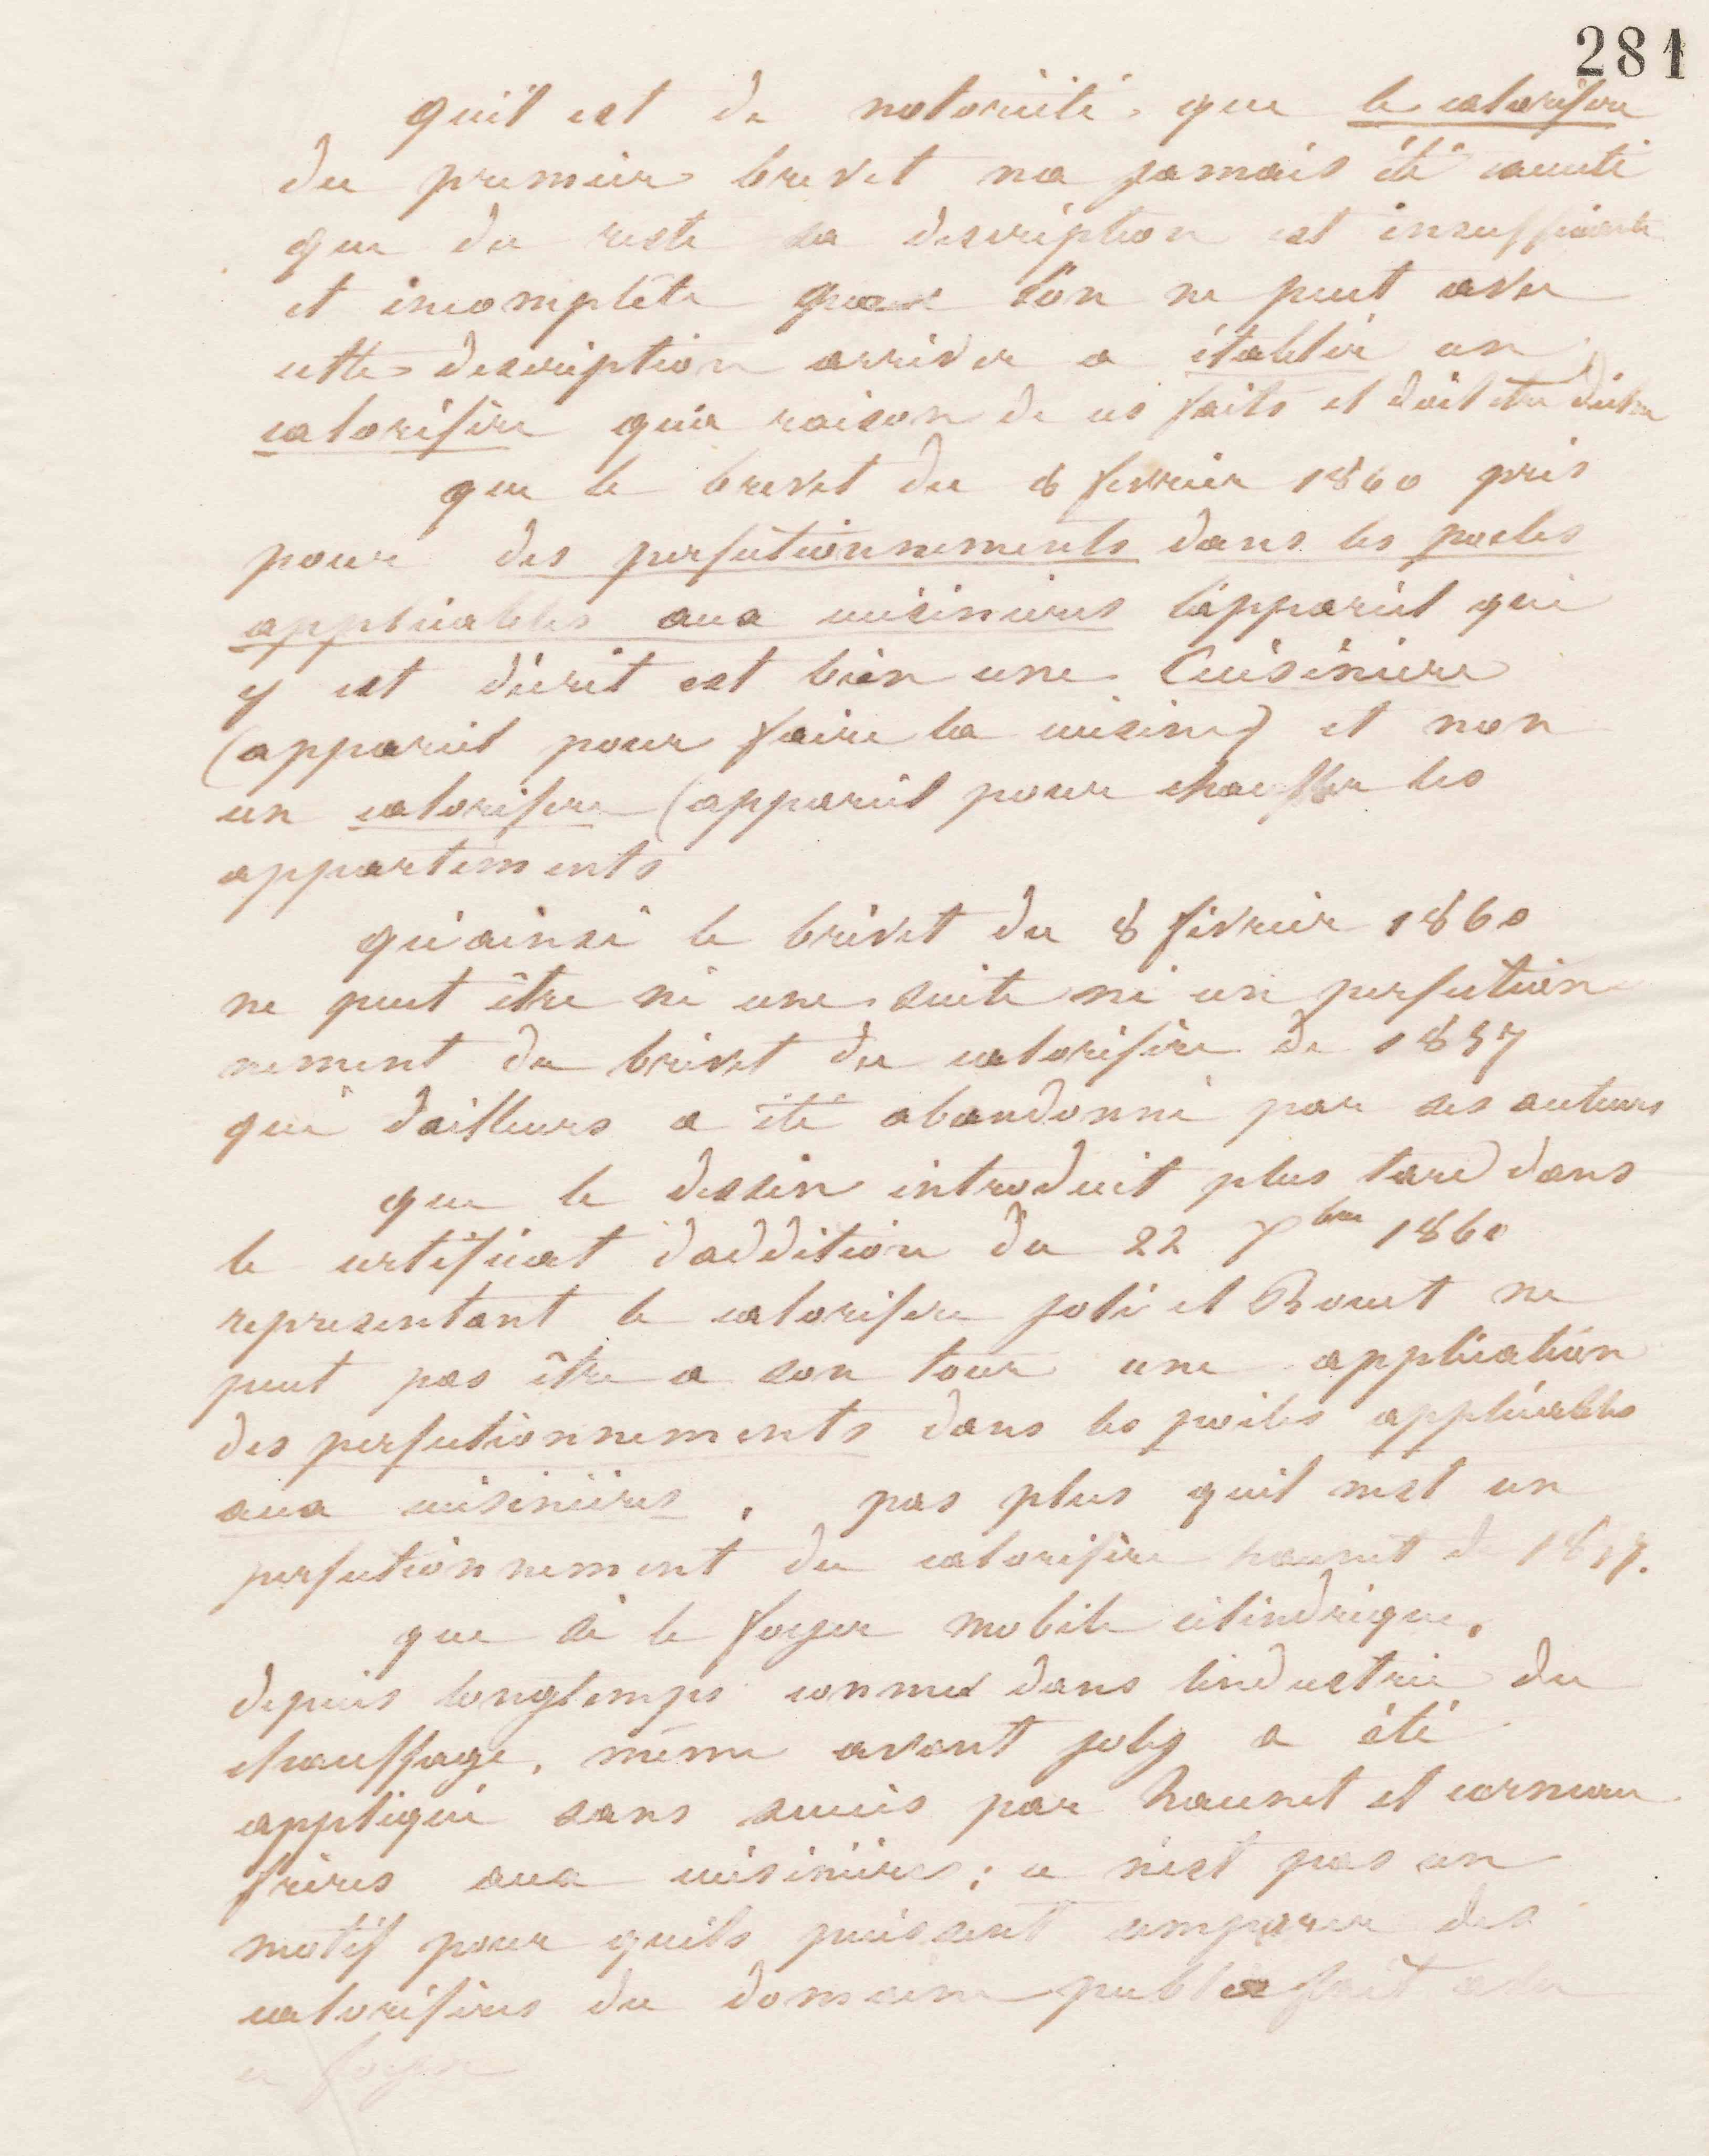 281
quil est de notoriété que le calorifere
du premier brevet na jamais été exécuté
que du reste sa description est insuffisante
et incomplète que l'on ne peut avec
cette description arriver a établir un
calorifère qu'a raison de ces faits il doit être déchu
que le brevet du 8 fevrier 1860 pris
pour des perfectionnements dans les poeles
applicables aux cuisinieres l'appareil qui
y est décrit est bien une Cuisiniere
(appareil pour faire la cuisine) et non
un calorifere (appareil pour chauffer les
appartements
qu'ainsi le brevet du 8 février 1860
ne peut être ni une suite ni un perfection
nement du brevet du calorifère de 1857
qui dailleurs a été abandonné par ses auteurs
que le dessin introduit plus tard dans
le certificat daddition du 22 1860
representant le calorifere joli et ne
peut pas être a son tour une application
des perfectionnements dans les poeles applicables
aux cuisinières, pas plus quil nest un
perfectionnement du calorifère haunet de 1857.
que si le foyer mobile cilindrique,
depuis longtemps connu dans lindustrie du
chauffage, même avant joly a été
appliqué sans succès par haunet et corneau
frères aux cuisinières; ce n'est pas un
motif pour quils puissent semparer des
calorifères du domaine public fait avec
ce foyer